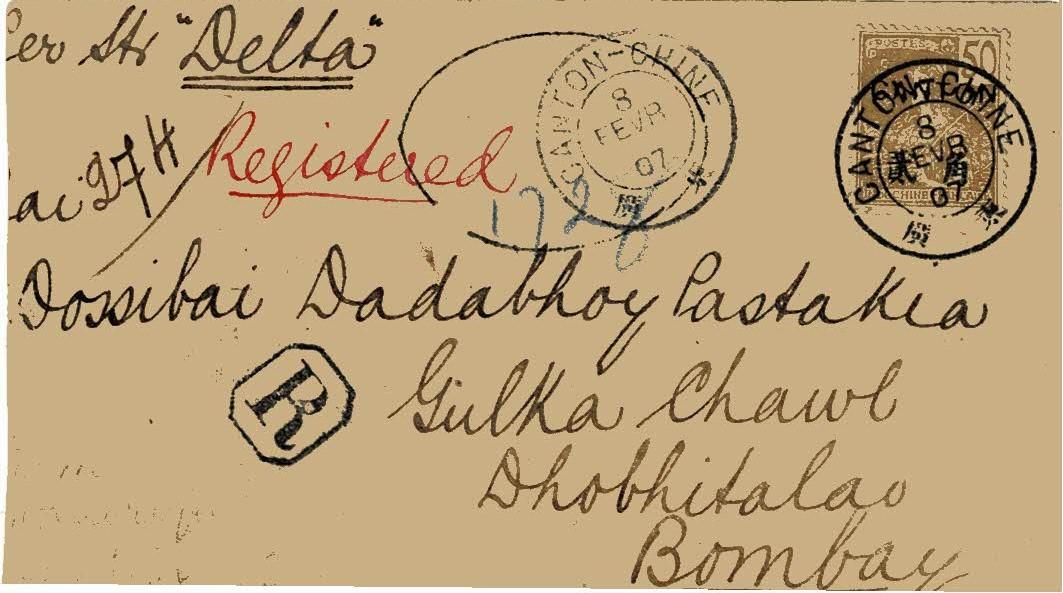 Per Str "Delta"
Registered
CANTON-CHINE
8
FEVR
07
廣 東
POSTES
50
CANTON
CANTON-CHINE
8
FEVR
07
貳 角
CHINE
廣 東
1728
Dossibai Dadabhoy Pastakia
R
Gulka Chawl
Dhobhitalao
Bombay